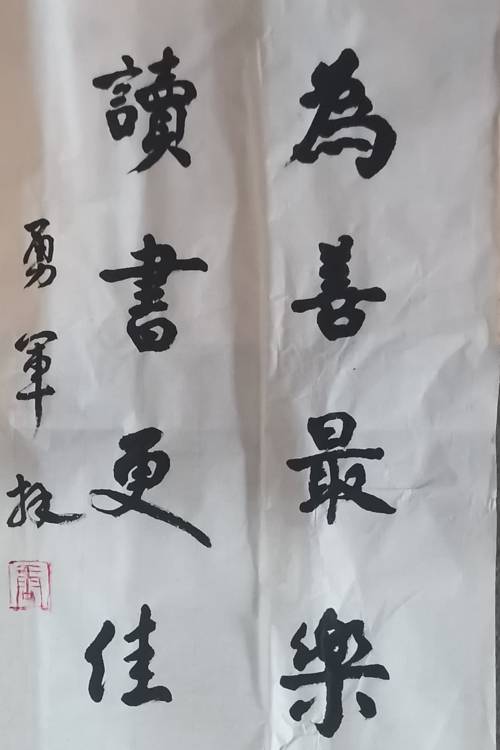 為善最樂
讀書更佳
勇軍